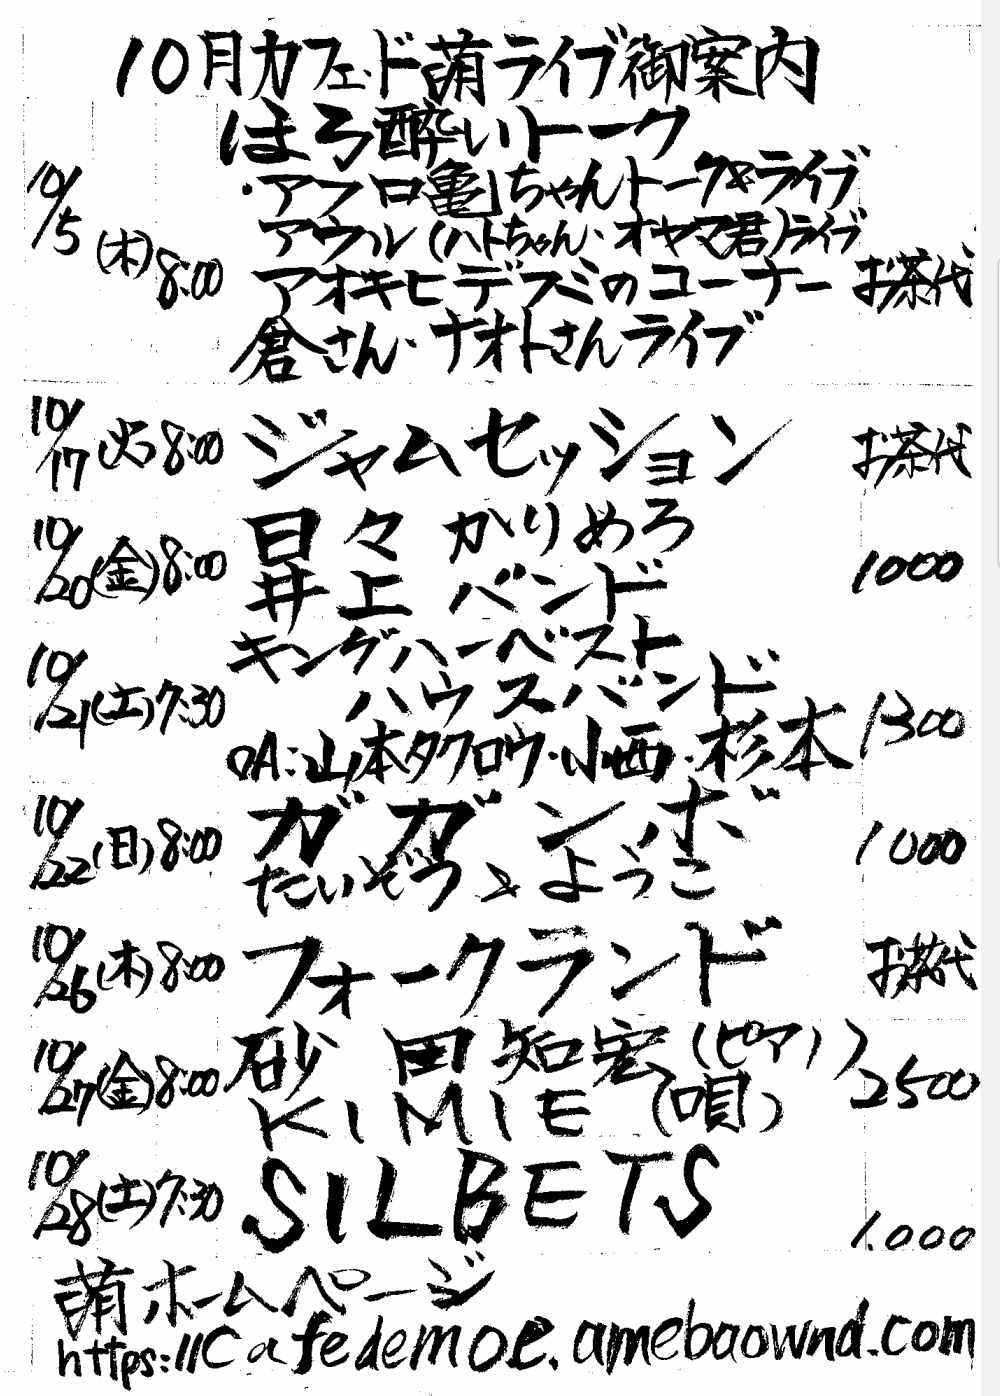 10月カフェ・ド萠ライブ御案内
ほろ酔いトーク
10/5 (木) 8:00
・アフロ亀ちゃんトーク&ライブ
アウル(ハトちゃん・オヤマ君)ライブ
アオキヒデフミのコーナー お茶代
倉さん・ナオトさんライブ
10/17 (火) 8:00 ジャムセッション お茶代
10/20 (金) 8:00 日々かりめろ
井上バンド 1000
10/21 (土) 7:30 キングハーベスト
ハウスバンド 1300
OA:山本タクロウ・小西・杉本
10/22 (日) 8:00 ガガンボ 1000
たいぞうとようこ
10/26 (木) 8:00 フォークランド お茶代
10/27 (金) 8:00 砂田知宏(ピアノ) 2500
KIMIE(唄)
10/28 (土) 7:30 SILBETS 1.000
萠ホームページ
https://Cafedemoe.amebaownd.com